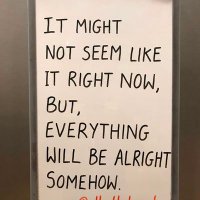 IT MIGHT
NOT SEEM LIKE
IT RIGHT NOW,
BUT,
EVERYTHING
WILL BE ALRIGHT
SOMEHOW.